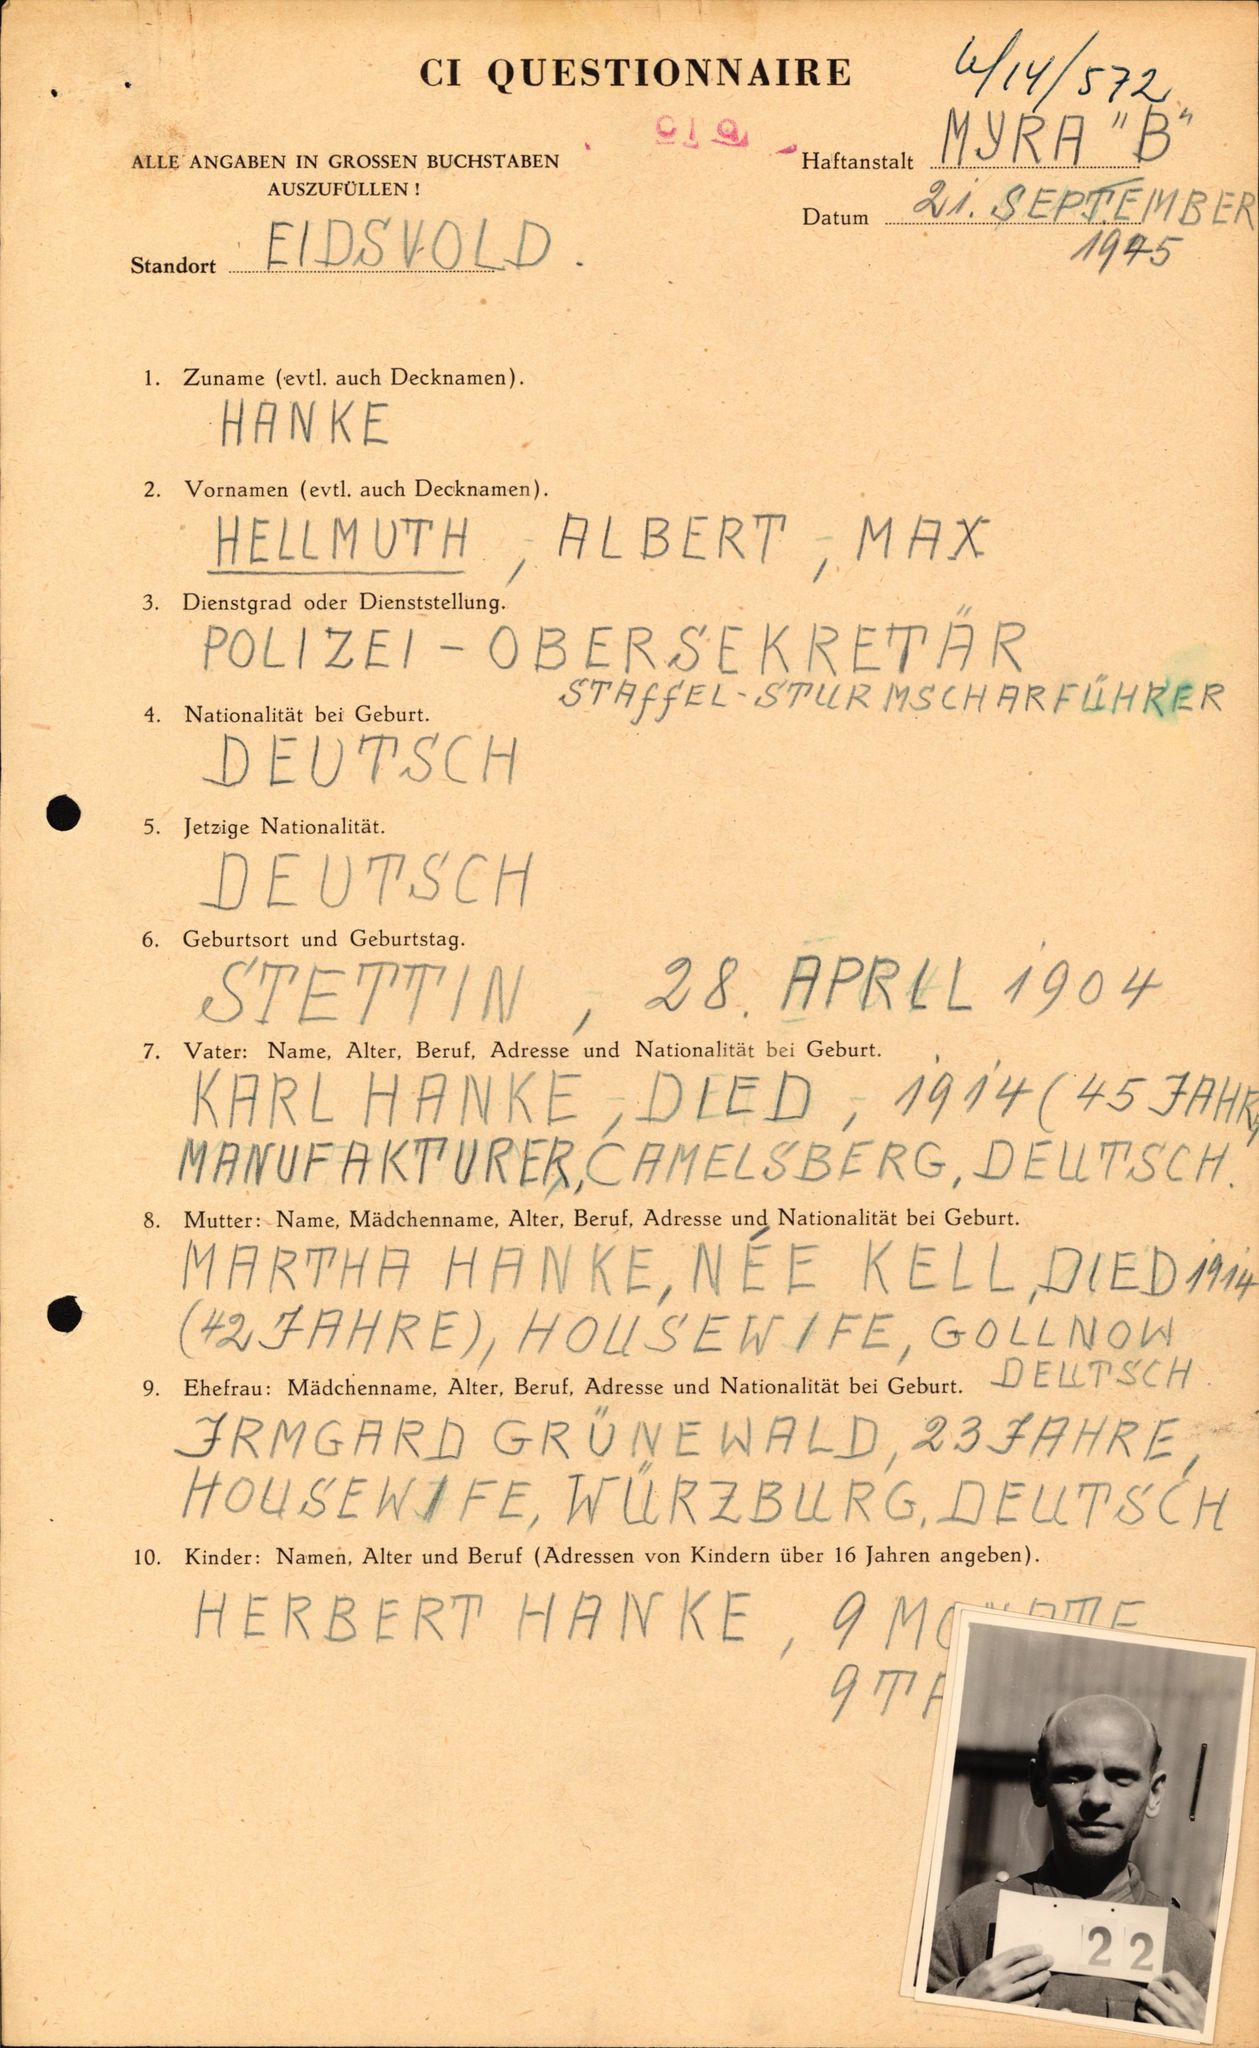 CI QUESTIONNAIRE
6/14/572
ALLE ANGABEN IN GROSSEN BUCHSTABEN
AUSZUFÜLLEN!
Haftanstalt MYRA "B"
Datum 21. SEPTEMBER
1945
Standort EIDSVOLD.
1. Zuname (evtl. auch Decknamen).
HANKE
2. Vornamen (evtl. auch Decknamen).
HELLMUTH, ALBERT, MAX
3. Dienstgrad oder Dienststellung.
POLIZEI-OBERSEKRETÄR
STAFFEL-STURMSCHARFÜHRER
4. Nationalität bei Geburt.
DEUTSCH
5. Jetzige Nationalität.
DEUTSCH
6. Geburtsort und Geburtstag.
STETTIN, 28. APRIL 1904
7. Vater: Name, Alter, Beruf, Adresse und Nationalität bei Geburt.
KARL HANKE, DIED, 1914 (45 JAHR)
MANUFAKTURER, CAMELSBERG, DEUTSCH.
8. Mutter: Name, Mädchenname, Alter, Beruf, Adresse und Nationalität bei Geburt.
MARTHA HANKE, NÉE KELL, DIED 1914
(42 JAHRE), HOUSEWIFE, GOLLNOW
DEUTSCH.
9. Ehefrau: Mädchenname, Alter, Beruf, Adresse und Nationalität bei Geburt.
IRMGARD GRÜNEWALD, 23 JAHRE,
HOUSEWIFE, WÜRZBURG, DEUTSCH
10. Kinder: Namen, Alter und Beruf (Adressen von Kindern über 16 Jahren angeben).
HERBERT HANKE, 9
9
22